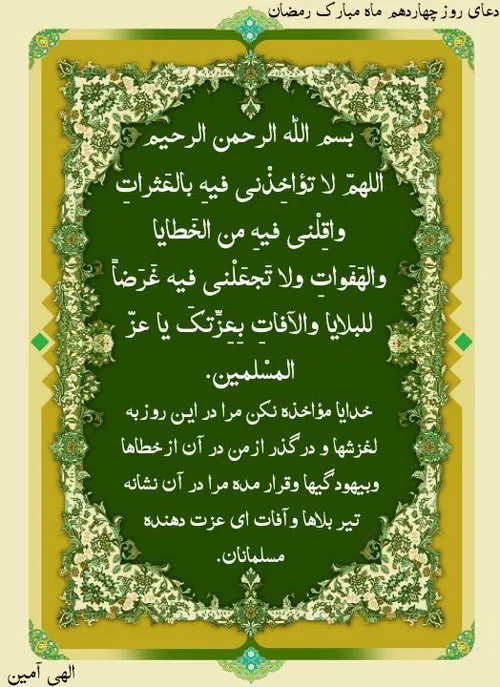 دعای روز چهاردهم ماه مبارک رمضان
بسم الله الرحمن الرحیم
اللهمّ لا تؤاخِذْنی فیهِ بالعَثراتِ
واقِلْنی فیهِ من الخَطایا
والهَفَواتِ ولا تَجعَلْنی فیه غَرَضاً
للبلایا والآفاتِ بِعِزّتِکَ یا عزّ
المسْلمین.
خدایا مؤاخذه نکن مرا در این روز به
لغزشها و درگذر از من در آن از خطاها
وبیهودگیها وقرار مده مرا در آن نشانه
تیر بلاها وآفات ای عزت دهنده
مسلمانان.
الهی آمین